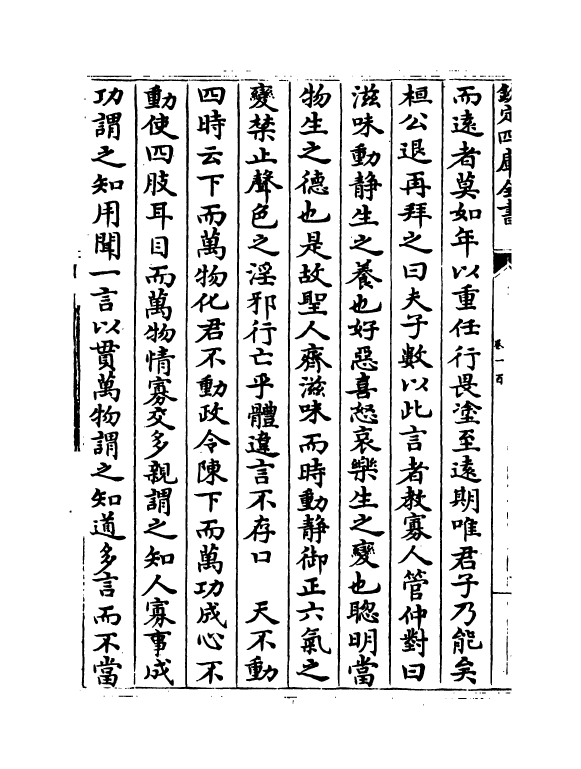 欽定四庫全書
卷一百
而遠者莫如年以重任行畏塗至遠期唯君子乃能矣
桓公退再拜之曰夫子數以此言者教寡人管仲對曰
滋味動靜生之養也好惡喜怒哀樂生之變也聰明當
物生之德也是故聖人齊滋味而時動静御正六氣之
變禁止聲色之淫邪行亡乎體違言不存口　天不動
四時云下而萬物化君不動政令陳下而萬功成心不
動使四肢耳目而萬物情寡交多親謂之知人寡事成
功謂之知用聞一言以貫萬物謂之知道多言而不當